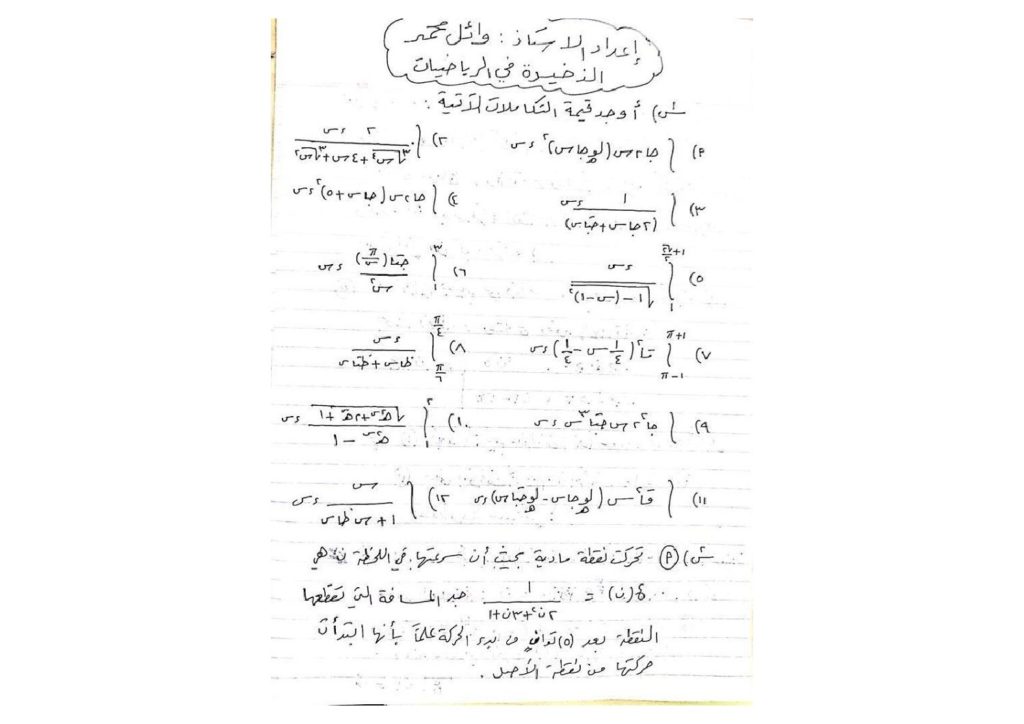 إعداد الاستاذ : وائل محمد
الذخيرة في الرياضيات
س) أوجد قيمة التكاملات الآتية :
١) ∫ جا٢س (لو_هـ جاس)^٢ ءس ٢) ∫ ٢ ءس / (∛س^٤ + ٤س + ∛س^٢)
٣) ∫ ١ / (٢جاس + جتاس) ءس ٤) ∫ جا٢س (جاس + ٥)^٢ ءس
٥) ∫ ءس / √(١ − (س−١)^٢) ٦) ∫_١^٣ جتا(π/س) / س^٢ ءس
٧) ∫_{π−١}^{π+١} قا^٢ (١/٤ س − ١/٤) ءس ٨) ∫_{π/٦}^{π/٤} ءس / (ظاس + ظتاس)
٩) ∫ جا^٢ ٢س جتا^٣ س ءس ١٠) ∫_١^٢ √(هـ^{٢س} + ٢هـ^س + ١) / (هـ^{٢س} − ١) ءس
١١) ∫ قا^٢س (لو_هـ جاس − لو_هـ جتاس) ءس ١٢) ∫ س / (١ + س ظاس) ءس
س) (٩) - تحركت نقطة مادية بحيث أن سرعتها في اللحظة ن هي
ع(ن) = ١ / (٢ن^٢ + ٣ن + ١) جد المسافة التي تقطعها
النقطة بعد (٥) ثواني من بدء الحركة علماً بأنها ابتدأت
حركتها من نقطة الأصل .